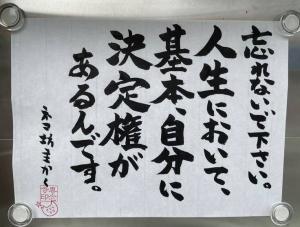 忘れないで下さい。
人生において、
基本、自分に
決定権が
あるんです。
ネコ坊主かく